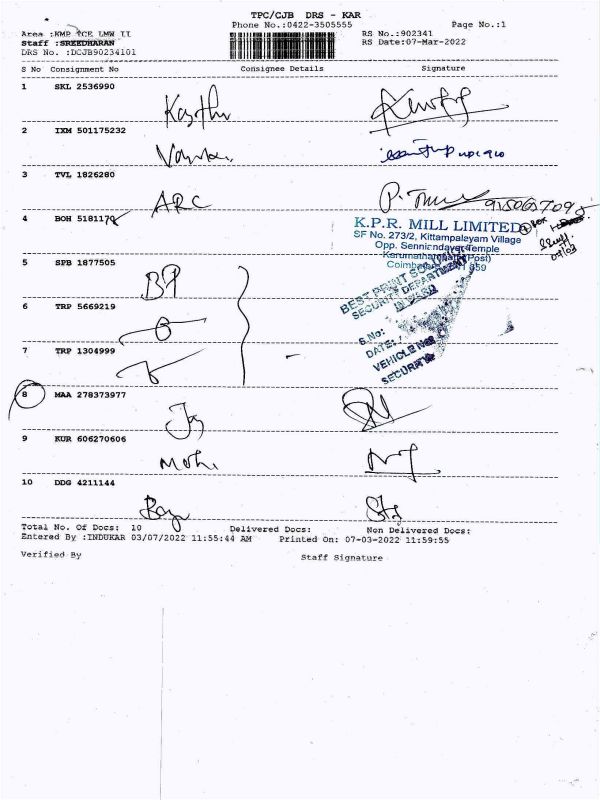 TPC/CJB DRS - KAR
Phone No.:0422-3505555 Page No.:1
Area :KMP TCE LMW II RS No.:902341
Staff :SREEDHARAN RS Date:07-Mar-2022
DRS No. :DCJB90234101
S No Consignment No Consignee Details Signature
1 SKL 2536990
2 IXM 501175232
3 TVL 1826280
ARC
4 BOH 5181170
K.P.R. MILL LIMITED
SF No. 273/2, Kittampalayam Village
Opp. Sennindavar Temple
5 SPB 1877505
BEST PRINT
SECURITY DEPARTMENT
INWARD
6 TRP 5669219
S.No:
DATE:
VEHICLE No
SECURITY
7 TRP 1304999
8 MAA 278373977
Jay
9 KUR 606270606
Mohi
10 DDG 4211144
Total No. Of Docs: 10 Delivered Docs: Non Delivered Docs:
Entered By :INDUKAR 03/07/2022 11:55:44 AM Printed On: 07-03-2022 11:59:55
Verified By Staff Signature